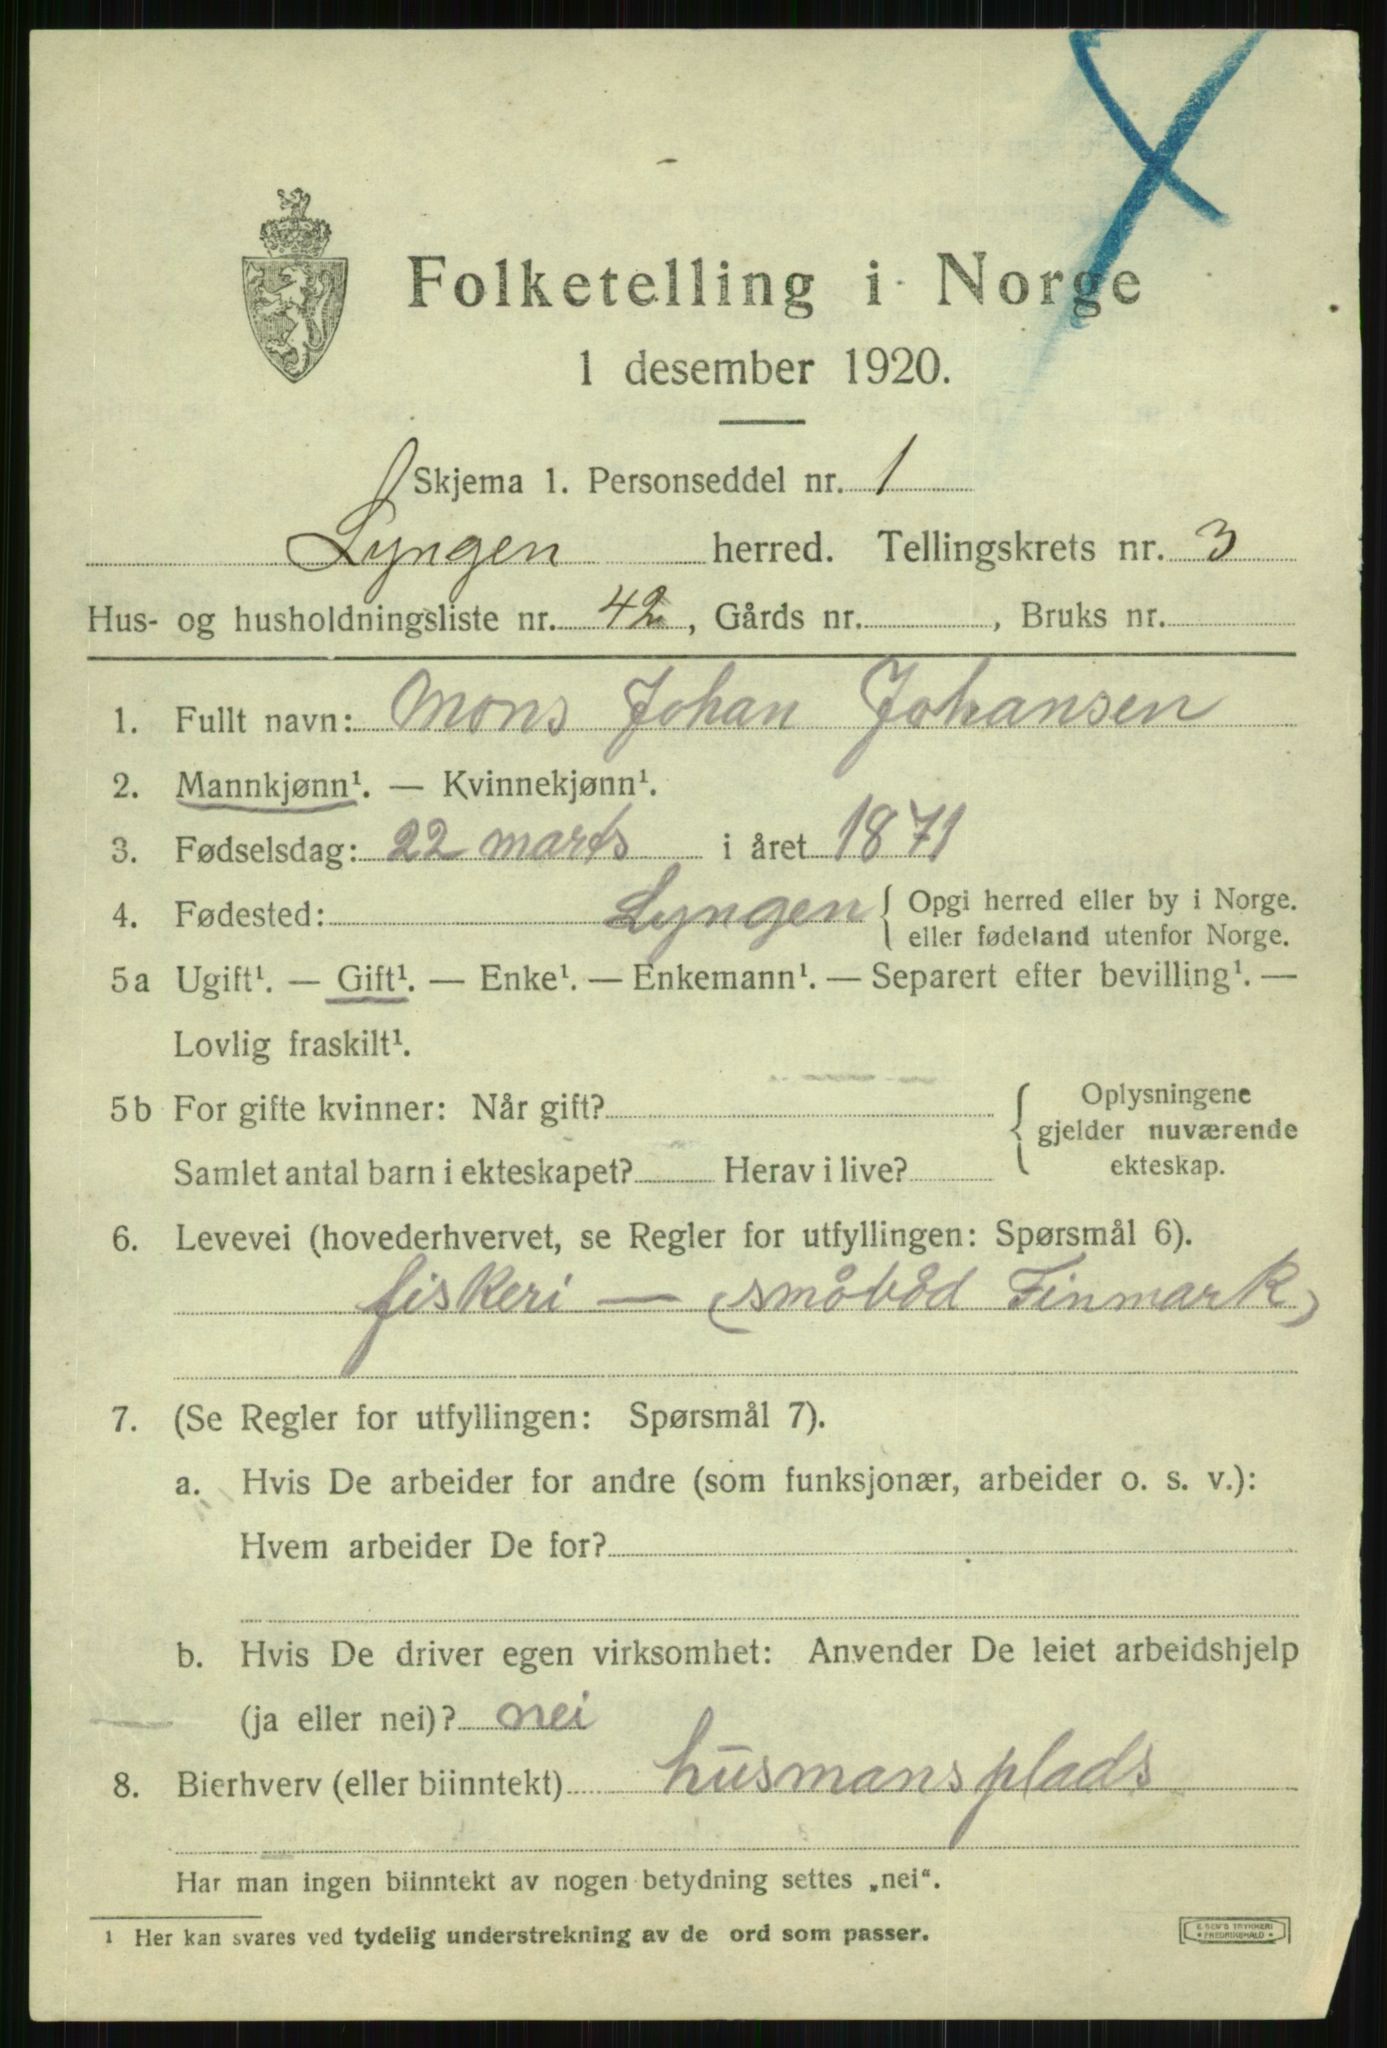 Folketelling i Norge
1 desember 1920.
Skjema 1. Personseddel nr. 1
Lyngen herred. Tellingskrets nr. 3
Hus- og husholdningsliste nr. 42, Gårds nr. , Bruks nr.
1. Fullt navn: Mons Johan Johansen
2. Mannkjønn¹. — Kvinnekjønn¹.
3. Fødselsdag: 22 marts i året 1871
4. Fødested: Lyngen { Opgi herred eller by i Norge.
eller fødeland utenfor Norge.
5a Ugift¹. — Gift¹. — Enke¹. — Enkemann¹. — Separert efter bevilling¹. —
Lovlig fraskilt¹.
5b For gifte kvinner: Når gift?
Samlet antal barn i ekteskapet? Herav i live?
{ Oplysningene
gjelder nuværende
ekteskap.
6. Levevei (hovederhvervet, se Regler for utfyllingen: Spørsmål 6).
fiskeri — (småbåd Finmark)
7. (Se Regler for utfyllingen: Spørsmål 7).
a. Hvis De arbeider for andre (som funksjonær, arbeider o. s. v.):
Hvem arbeider De for?
b. Hvis De driver egen virksomhet: Anvender De leiet arbeidshjelp
(ja eller nei)? nei
8. Bierhverv (eller biinntekt) husmansplads
Har man ingen biinntekt av nogen betydning settes „nei“.
¹ Her kan svares ved tydelig understrekning av de ord som passer.
TRYKKERI
FREDRIKSHALD